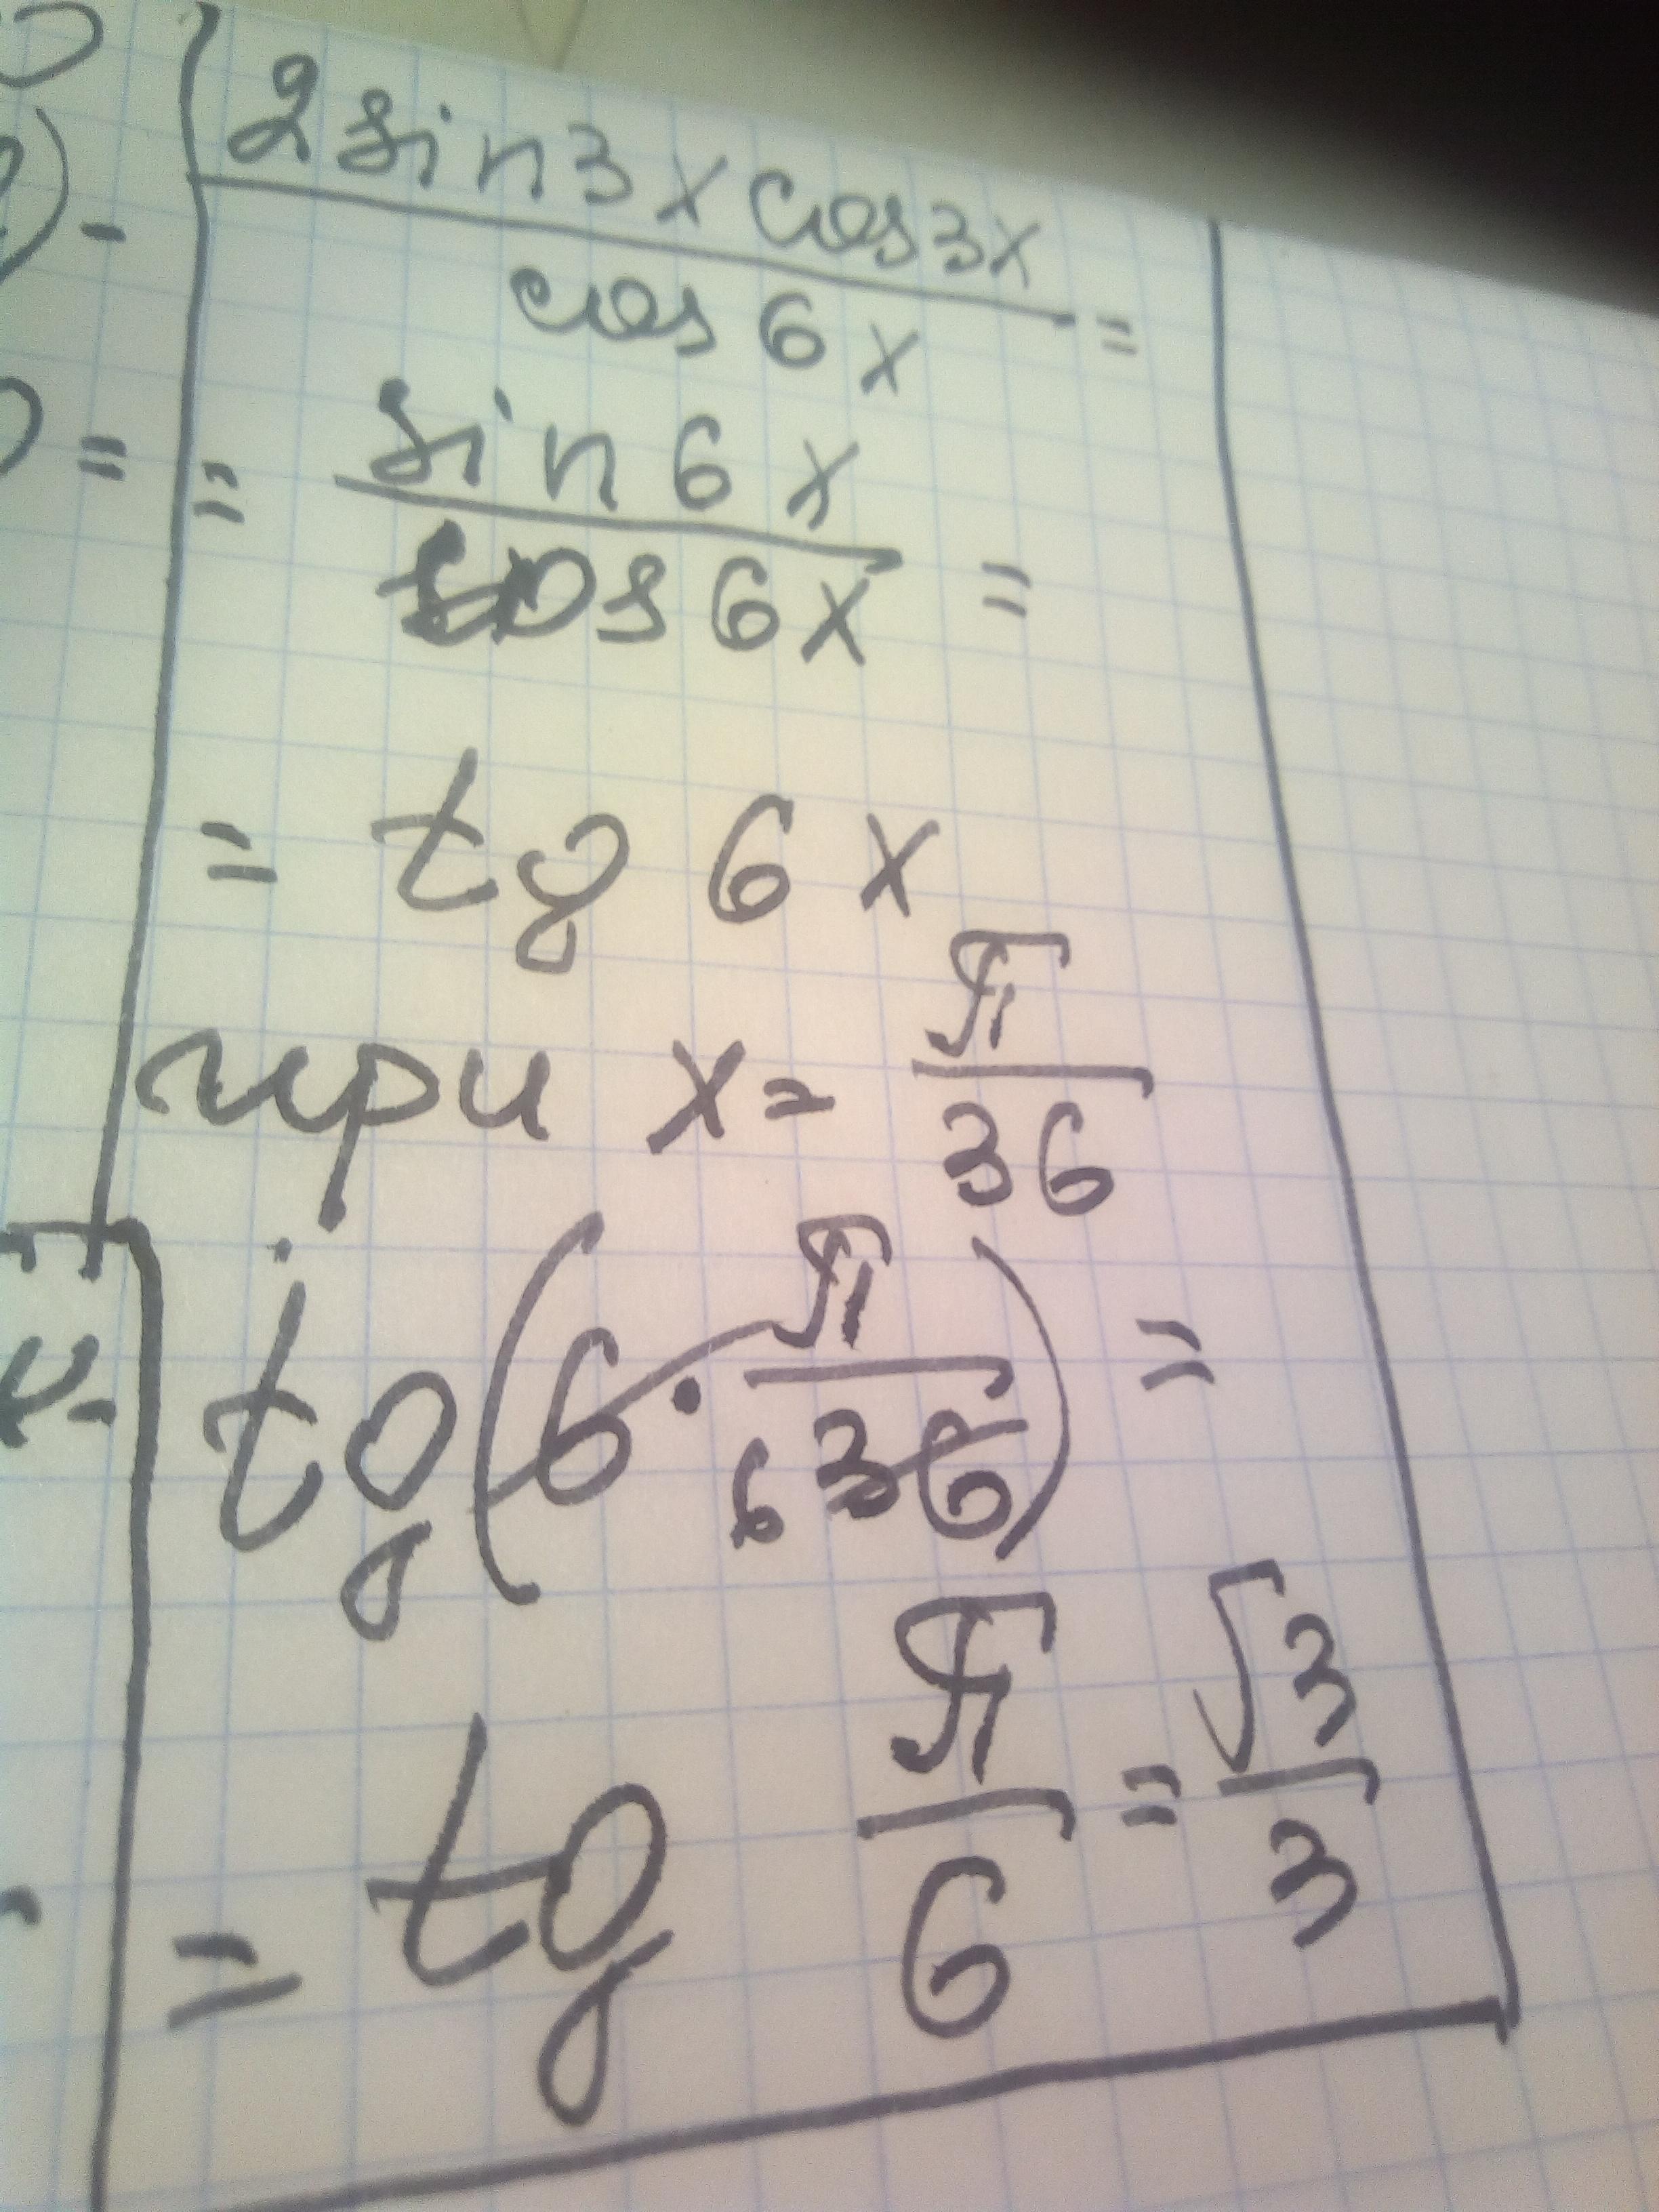 2 sin 3x cos 3x
cos 6x =
= sin 6x
cos 6x =
= tg 6x
при x = π/36
tg (6 · π/36) =
6
= tg π/6 = √3/3